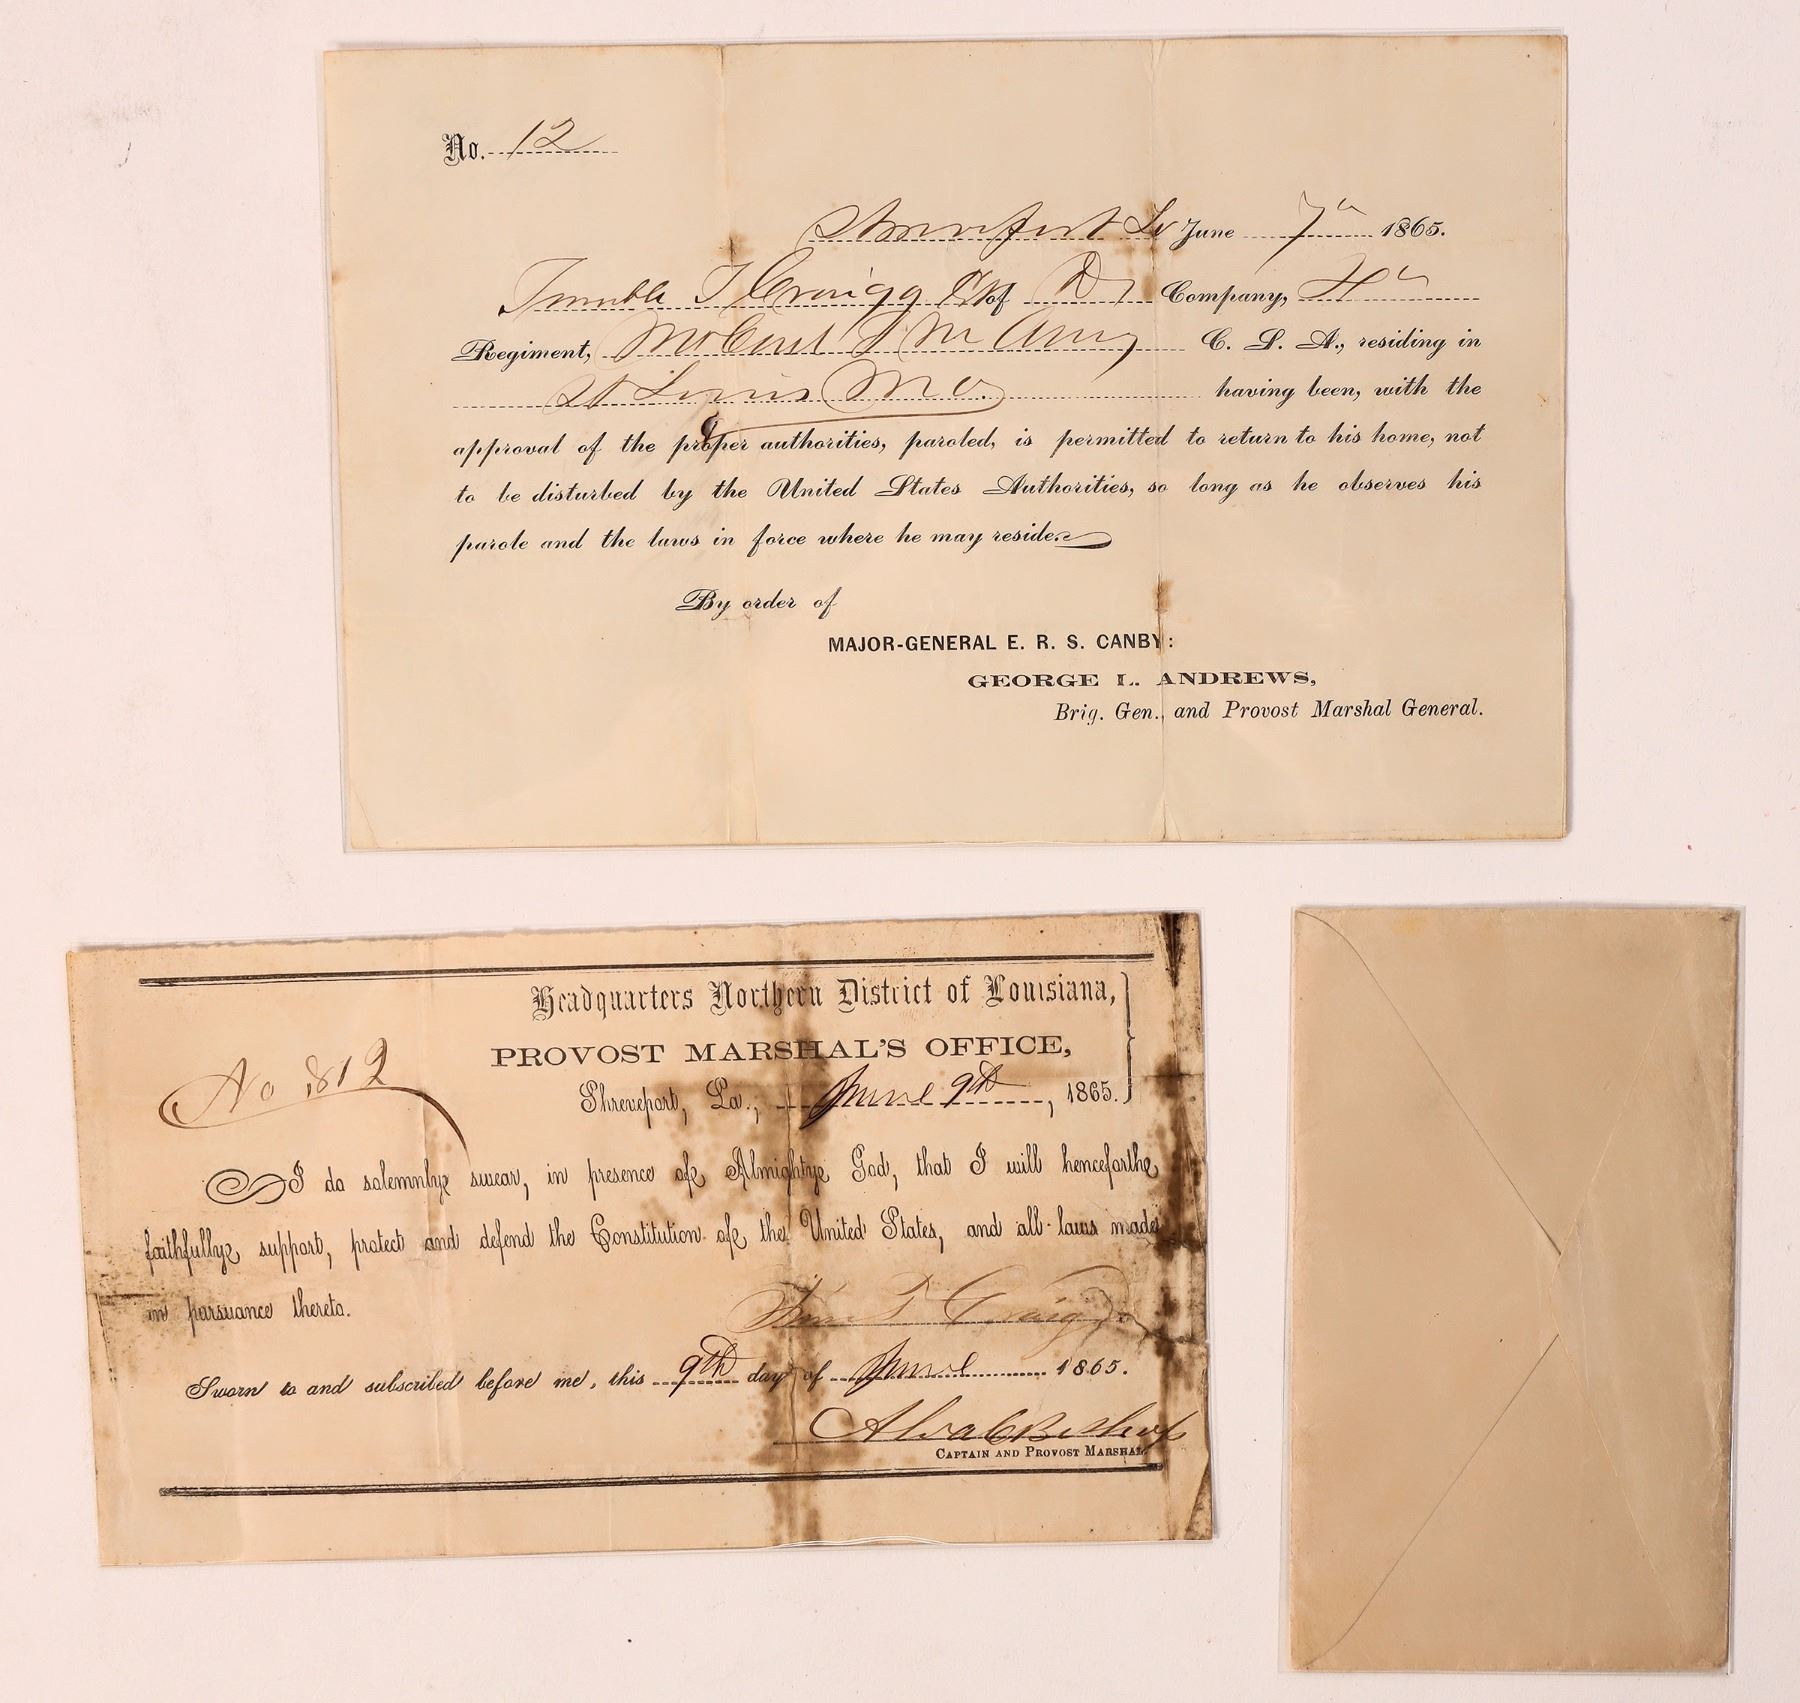 No. 12
Shreveport La June 7th 1865.
Trimble T Craigg of D, Company, 4th
Regiment, Mo Army C. S. A., residing in
St Louis Mo. having been, with the
approval of the proper authorities, paroled, is permitted to return to his home, not
to be disturbed by the United States Authorities, so long as he observes his
parole and the laws in force where he may reside.
By order of
MAJOR-GENERAL E. R. S. CANBY:
GEORGE L. ANDREWS,
Brig. Gen., and Provost Marshal General.
Headquarters Northern District of Louisiana,
PROVOST MARSHAL'S OFFICE,
No 1812
Shreveport, La., June 9th, 1865.
I do solemnly swear, in presence of Almighty God, that I will henceforth
faithfully support, protect and defend the Constitution of the United States, and all laws made
in parsuance thereto.
T Craigg
Sworn to and subscribed before me, this 9th day of June 1865.
CAPTAIN AND PROVOST MARSHAL.